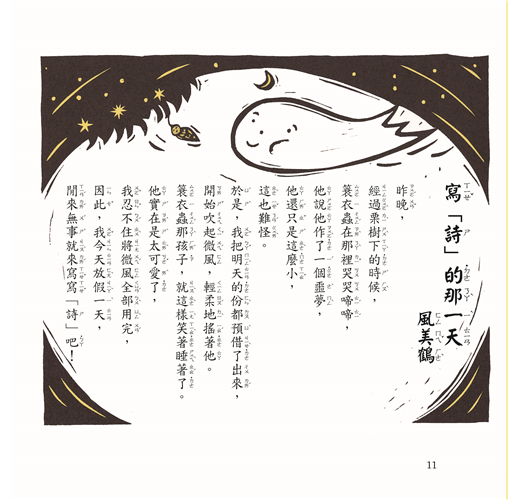 寫「詩」的那一天
風美鶴
昨晚，
經過栗樹下的時候，
簑衣蟲在那裡哭哭啼啼，
他說他作了一個噩夢，
他還只是這麼小，
這也難怪。
於是，我把明天的份都預借了出來，
開始吹起微風，輕柔地搖著他。
簑衣蟲那孩子，就這樣笑著睡著了。
他實在是太可愛了，
我忍不住將微風全部用完，
因此，我今天放假一天，
閒來無事就來寫寫「詩」吧！
11